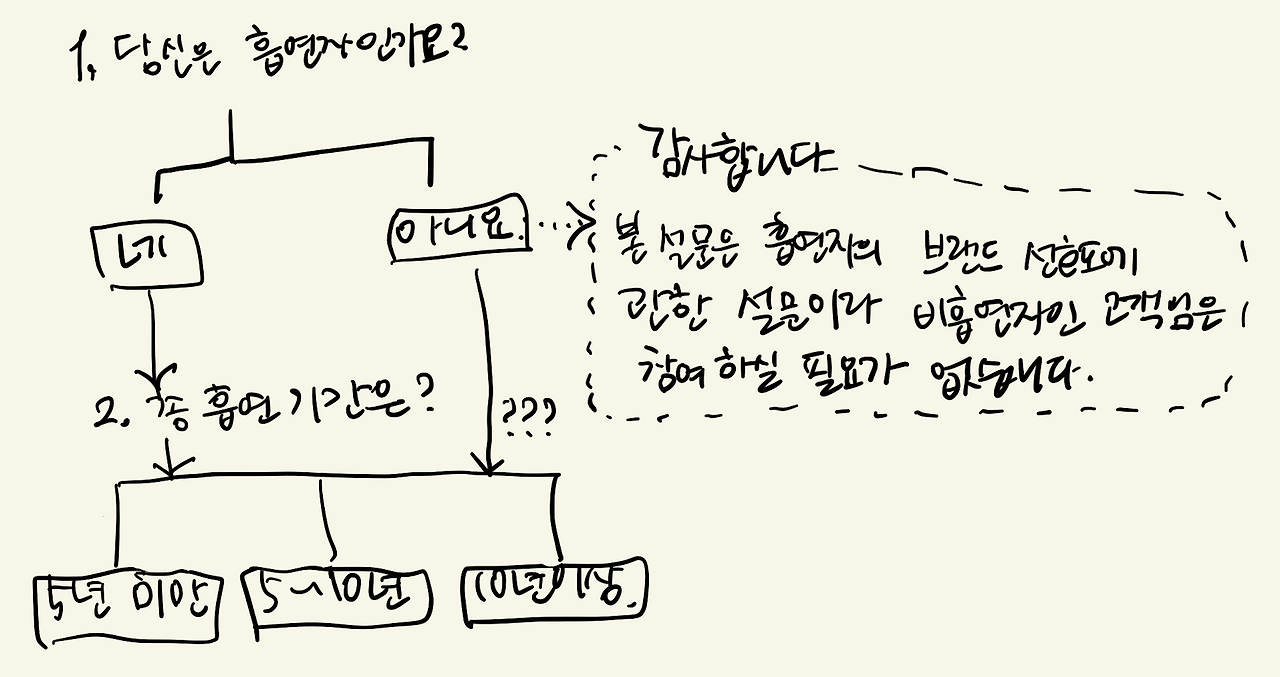 1. 당신은 흡연자인가요?
네
아니요.
감사합니다
본 설문은 흡연자의 브랜드 선호도에
관한 설문이라 비흡연자인 고객님은
참여하실 필요가 없습니다.
2. 총 흡연기간은?
???
5년 미만
5~10년
10년이상.